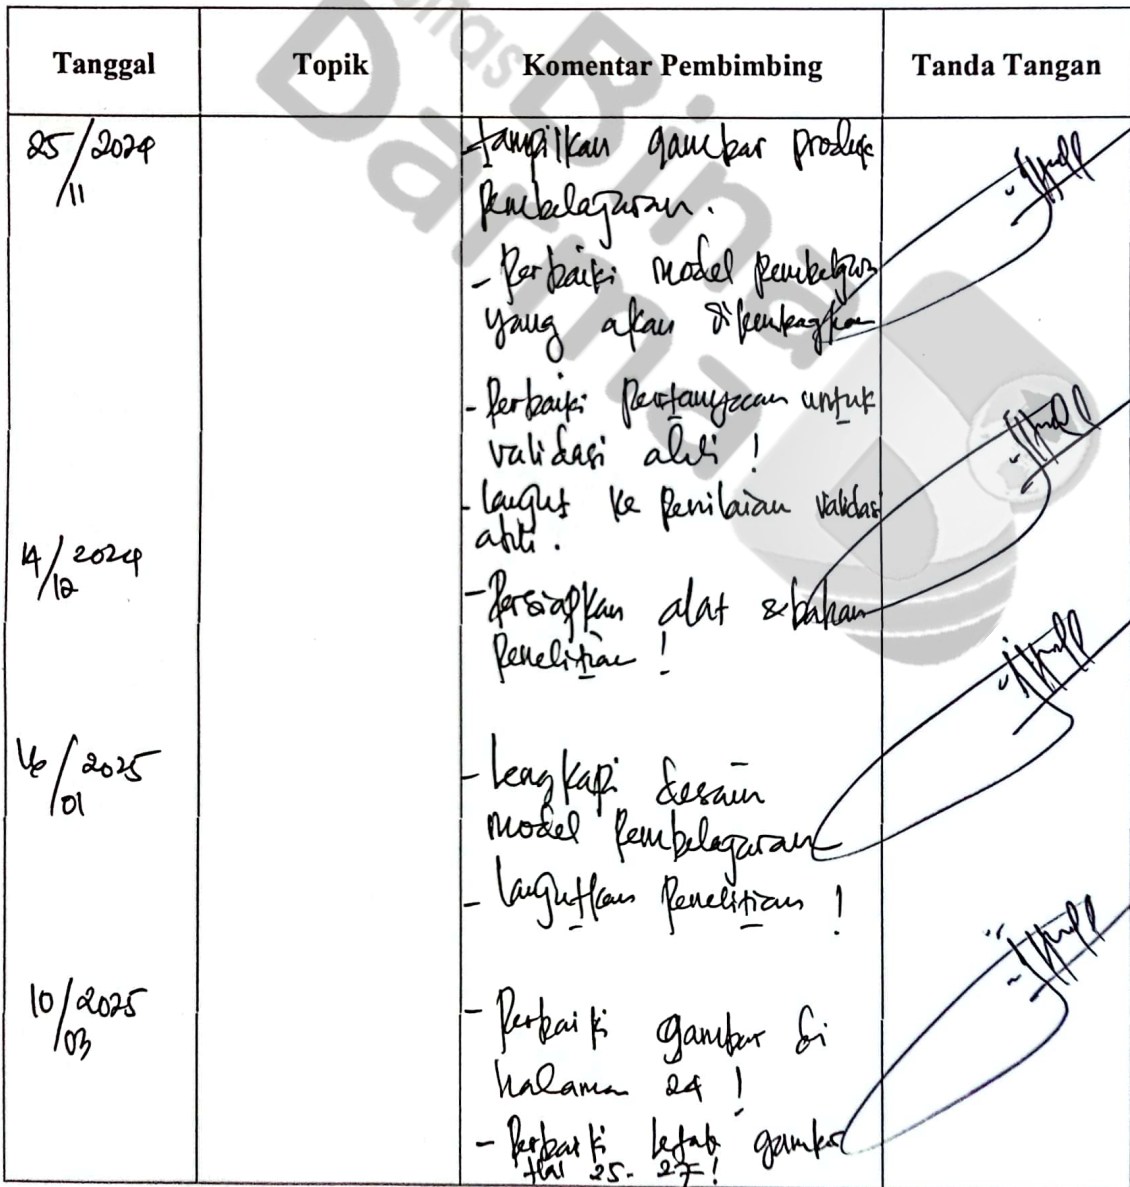 Universitas Bina Darma
Tanggal Topik Komentar Pembimbing Tanda Tangan
25/11 2024
- tampilkan gambar produk
pembelajaran.
- Perbaiki model pembelajaran
yang akan dikembangkan
- Perbaiki pertanyaan untuk
validasi ahli !
- lanjut ke penilaian validasi
ahli.
14/12 2024
- Persiapkan alat & bahan
penelitian !
16/01 2025
- lengkapi desain
model pembelajaran
- lanjutkan penelitian !
10/03 2025
- Perbaiki gambar di
halaman 24 !
- Perbaiki letak gambar
Hal 25-27 !